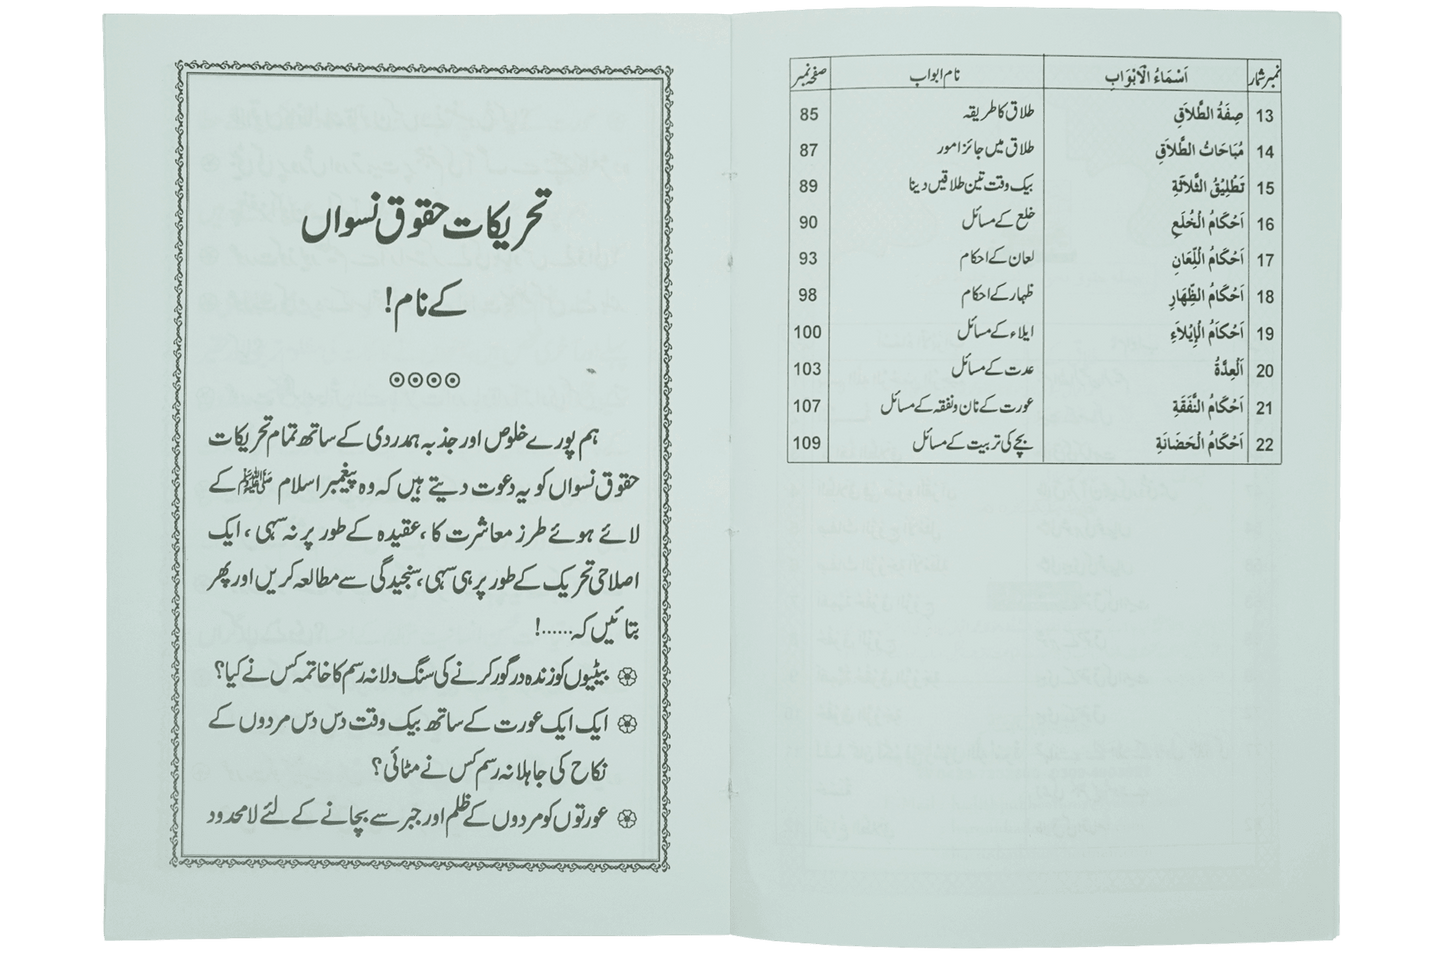 نمبر شمار اَسْمَاءُ الْاَبْوَابِ نام ابواب صفحہ نمبر
13 صِفَةُ الطَّلاَقِ طلاق کا طریقہ 85
14 مُبَاحَاتُ الطَّلاَقِ طلاق میں جائز امور 87
15 تَطْلِيْقُ الثَّلاَثَةِ بیک وقت تین طلاقیں دینا 89
16 اَحْكَامُ الْخُلَعِ خلع کے مسائل 90
17 اَحْكَامُ اللِّعَانِ لعان کے احکام 93
18 اَحْكَامُ الظِّهَارِ ظہار کے احکام 98
19 اَحْكَامُ الْإِيْلاَءِ ایلاء کے مسائل 100
20 اَلْعِدَّةُ عدت کے مسائل 103
21 اَحْكَامُ النَّفَقَةِ عورت کے نان و نفقہ کے مسائل 107
22 اَحْكَامُ الْحَضَانَةِ بچے کی تربیت کے مسائل 109
تحریکات حقوق نسواں
کے نام!
ہم پورے خلوص اور جذبہ ہمدردی کے ساتھ تمام تحریکات
حقوق نسواں کو یہ دعوت دیتے ہیں کہ وہ پیغمبر اسلام ﷺ کے
لائے ہوئے طرز معاشرت کا ، عقیدہ کے طور پر نہ سہی ، ایک
اصلاحی تحریک کے طور پر ہی سہی ، سنجیدگی سے مطالعہ کریں اور پھر
بتائیں کہ......!
بیٹیوں کو زندہ درگور کرنے کی سنگ دلانہ رسم کا خاتمہ کس نے کیا؟
ایک ایک عورت کے ساتھ بیک وقت دس دس مردوں کے
نکاح کی جاہلانہ رسم کس نے مٹائی؟
عورتوں کو مردوں کے ظلم اور جبر سے بچانے کے لئے لامحدود